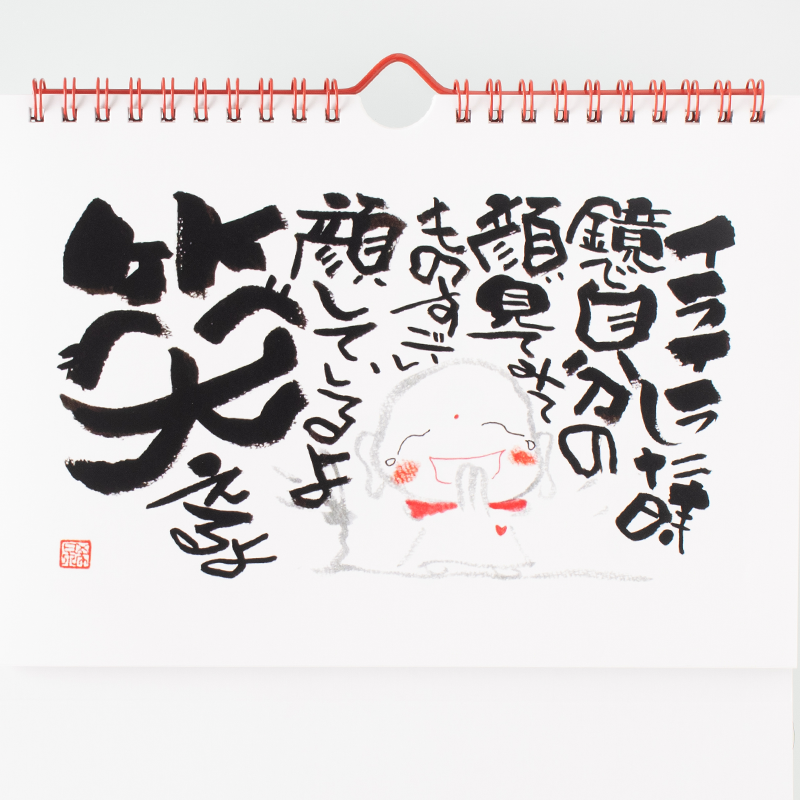 イライラした時
鏡で自分の
顔見てみて
ものすごい
顔しているよ
笑えるよ